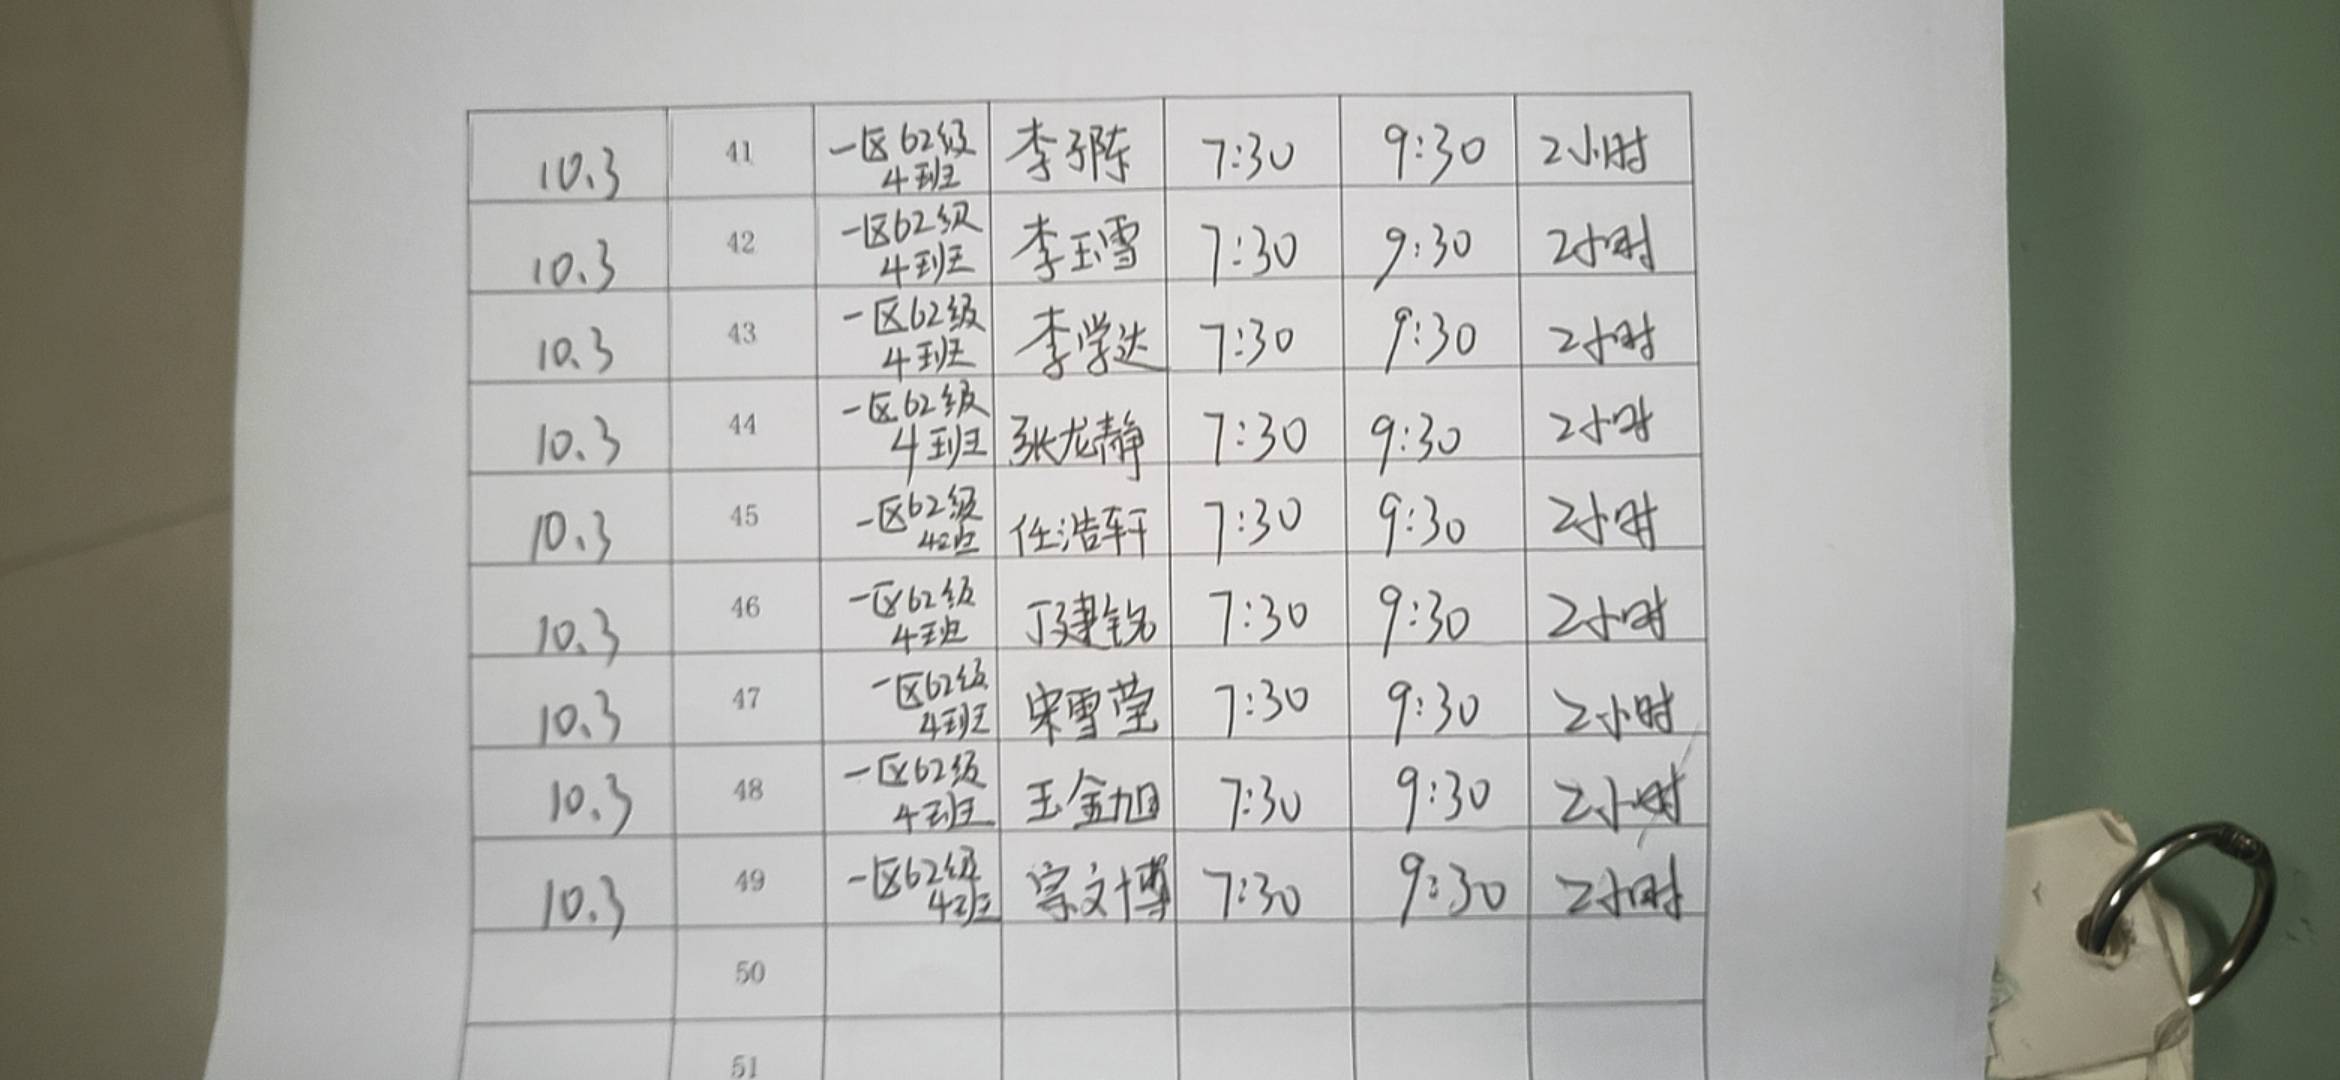 10.3 41 一区62级4班 李子陈 7:30 9:30 2小时
10.3 42 一区62级4班 李玉雪 7:30 9:30 2小时
10.3 43 一区62级4班 李学达 7:30 9:30 2小时
10.3 44 一区62级4班 张龙静 7:30 9:30 2小时
10.3 45 一区62级4班 任浩轩 7:30 9:30 2小时
10.3 46 一区62级4班 丁建锐 7:30 9:30 2小时
10.3 47 一区62级4班 宋雪莹 7:30 9:30 2小时
10.3 48 一区62级4班 王金旭 7:30 9:30 2小时
10.3 49 一区62级4班 宗文博 7:30 9:30 2小时
50
51